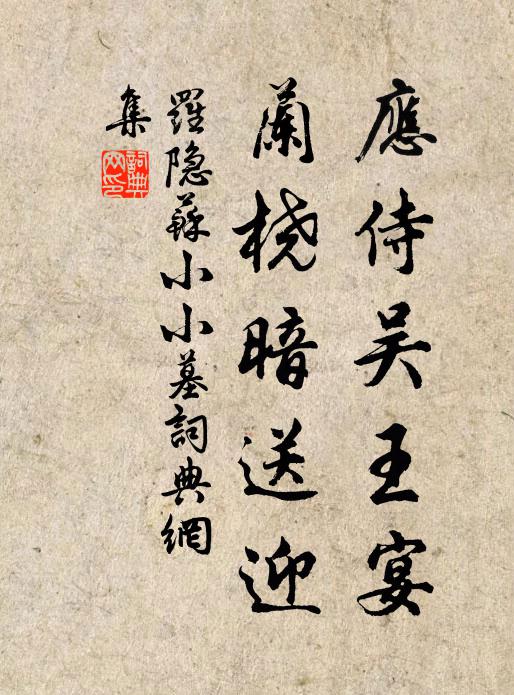 應侍吴王宴
蘭桡暗送迎
羅隐蘇小小墓詞典網
集
詞典
网印